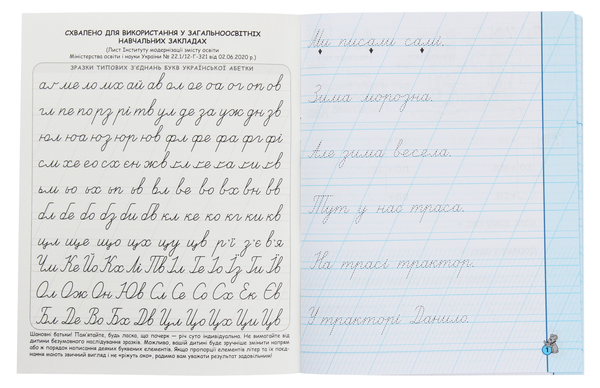 СХВАЛЕНО ДЛЯ ВИКОРИСТАННЯ У ЗАГАЛЬНООСВІТНІХ
НАВЧАЛЬНИХ ЗАКЛАДАХ
(Лист Інституту модернізації змісту освіти
Міністерства освіти і науки України № 22.1/12-Г-321 від 02.06.2020 р.)
ЗРАЗКИ ТИПОВИХ З'ЄДНАНЬ БУКВ УКРАЇНСЬКОЇ АБЕТКИ
ал ме ло мх ай ав ол ое оа ог оп ов
гл пе по рз рі тв ул де за уж дн зв
юл юа юз юр юв фл фе фа фг фі
сл хе ео сх єн жв кл ке ка ки кв
ьл ьо ьх ьп ьв вл ве во вх вн вв
бл бе бо бз би бв кл ке ко кг ки кв
щл ще що щх щу щв р'ї з'є в'я
Чл Ке Йо Кх Мі Пв Іл Ге Іо Їз Ги Їв
Ол Ож Он Юв Сл Се Со Сх Ек Єв
Бл Де Во Бх Дв Цл Цо Цх Ци Цв
Шановні батьки! Пам'ятайте, будь ласка, що почерк — річ суто індивідуальна. Не вимагайте від
дитини безумовного наслідування зразків. Можливо, вашій дитині буде зручніше змінити напрям
або ж порядок написання деяких буквених елементів. Якщо пропорції елементів літер та їх поєд-
нання мають звичний вигляд і не «ріжуть око», радимо вам уважати результат задовільним!
Ми писали самі.
Зима морозна.
Але зима весела.
Тут у нас траса.
На трасі трактор.
У тракторі Данило.
1